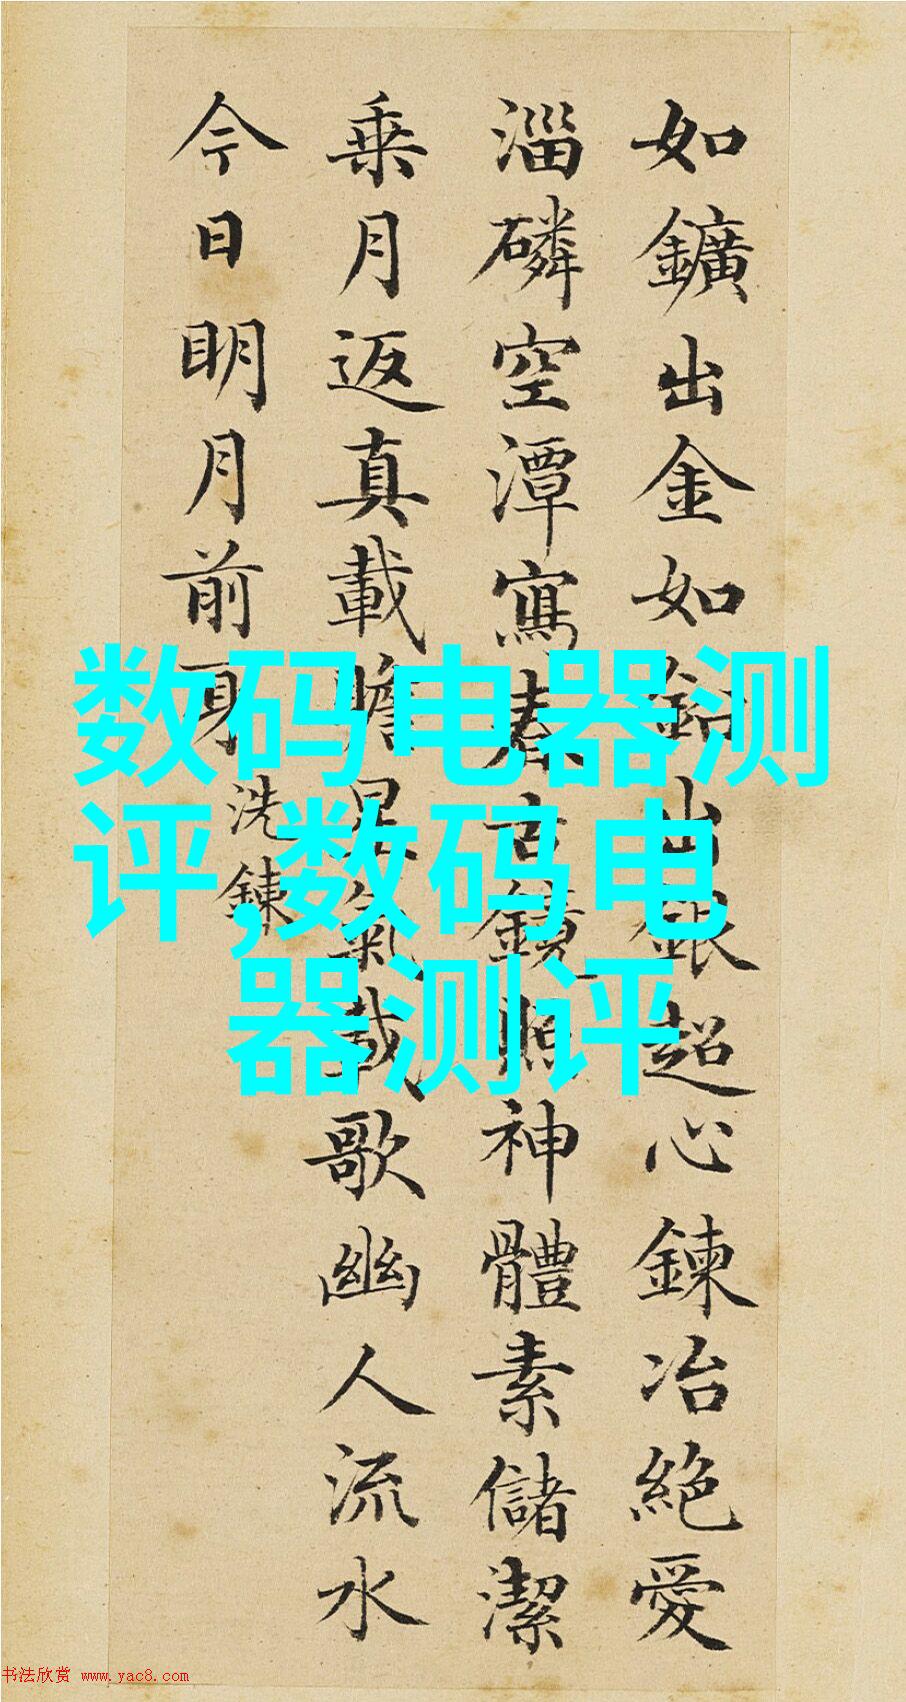 如鑛出金如鉛出銀超心鍊冶絕愛
淄磷空潭寫春古鏡照神體素儲潔
乗月返真載瞻星氣載歌幽人流水
今日明月前身
洗鍊
数码电器测
评,数码电
器测评
书法欣赏 www.yac8.com